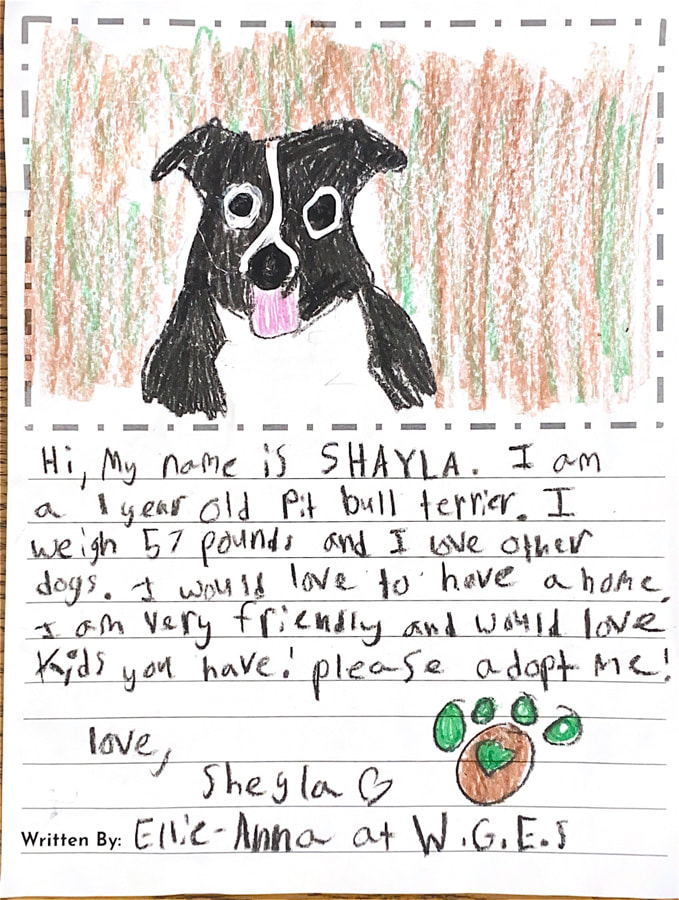 Hi, My name is SHAYLA. I am
a 1 year old Pit bull terrier. I
weigh 57 pounds and I love other
dogs. I would love to have a home.
I am very friendly and would love
Kids you have! please adopt me!
love,
Sheyla
Written By: Ellie-Anna at W.G.E.S